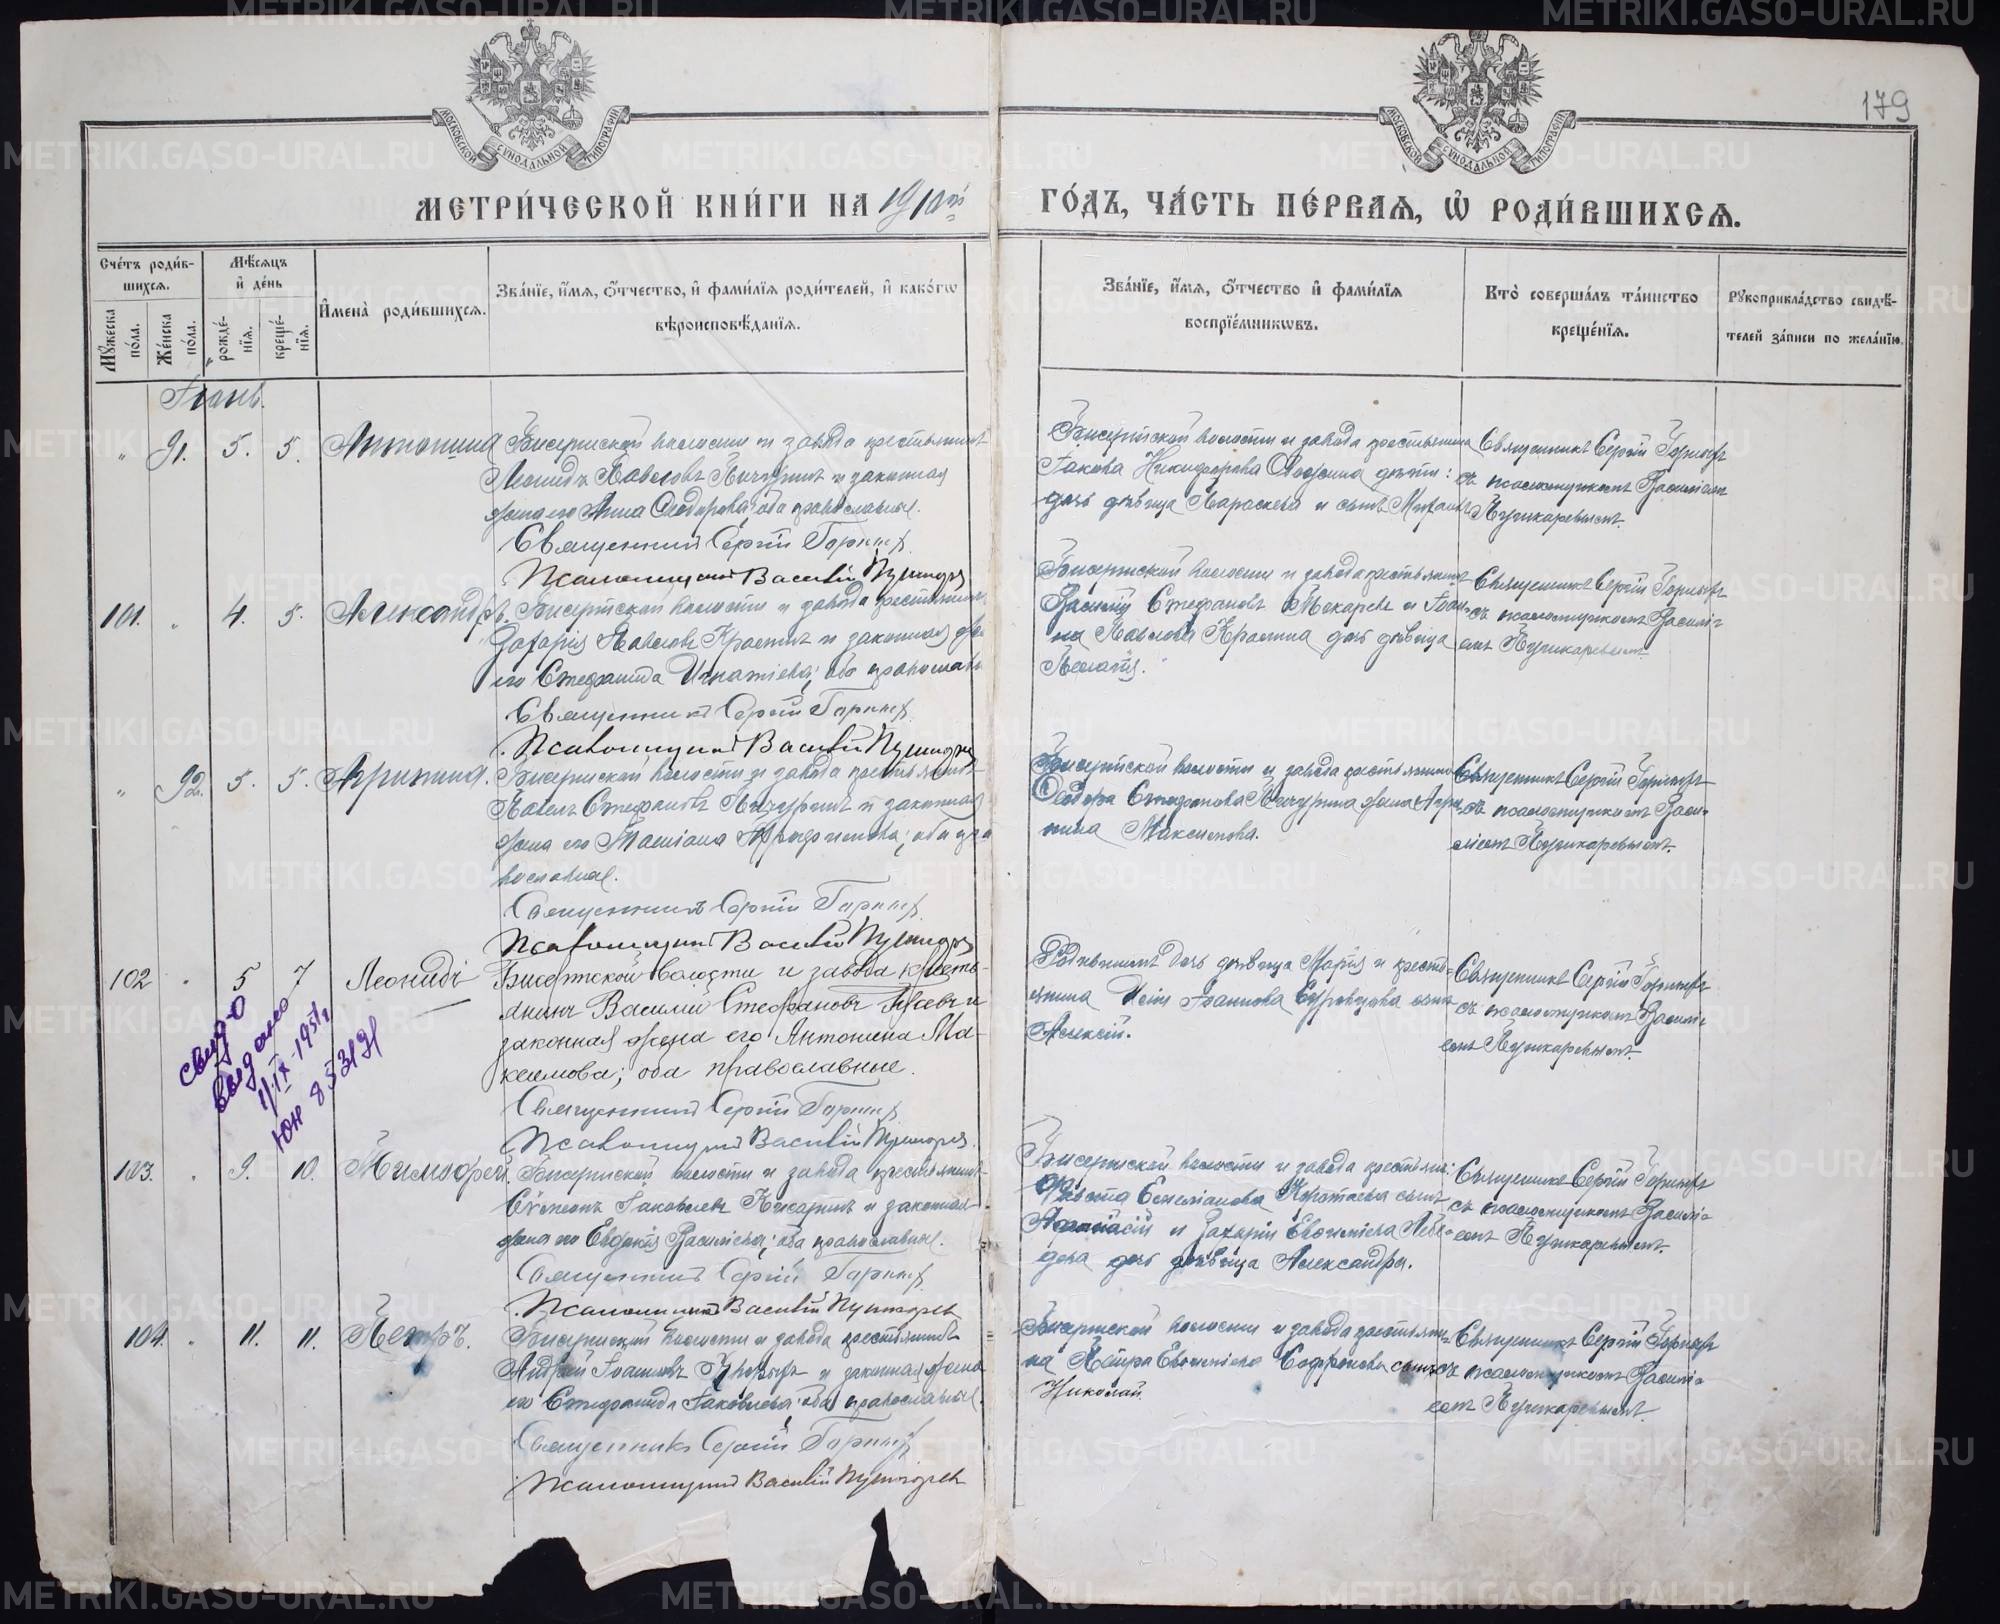 МЕТРИ́ЧЕСКОЙ КНИ́ГИ НА 1910й ГО́ДЪ, ЧА́СТЬ ПЕ́РВАЯ, Ѡ РОДИ́ВШИХСЯ.
179
МОСКОВСКОЙ СѴНОДАЛЬНОЙ ТИПОГРАФІИ
МОСКОВСКОЙ СѴНОДАЛЬНОЙ ТИПОГРАФІИ
Сче́тъ роди́в-
шихся.
Мѣ́сяцъ
и̂ де́нь
Мꙋ́жеска по́ла.
Же́нска по́ла.
рожде́-
нїя.
креще́-
нїя.
И̂мена̀ роди́вшихся.
Зва́нїе, и̂́мя, ѻ̂́тчество, и̂ фами́лїя роди́телей, и̂ како́гѡ
вѣроисповѣ́данїя.
Зва́нїе, и̂́мя, ѻ̂́тчество и̂ фами́лїя
воспрїе́мникѡвъ.
Кто̀ соверша́лъ та́инство
креще́нїя.
Рꙋкоприкла́дство свидѣ́-
телей за́писи по жела́нїю.
Іюнь.
" 91. 5. 5. Антонина
Бисертской волости и завода крестьянинъ
Леонидъ Павловъ Пичугинъ и законная
жена его Анна Ѳеодорова; оба православные.
Священникъ Сергій Горныхъ
Псаломщикъ Василій Пушкаревъ
Бисертской волости и завода крестьянина
Іакова Никифорова дѣти:
дочь дѣвица Параскева и сынъ Михаилъ
Священникъ Сергій Горныхъ
съ псаломщикомъ Василіемъ
Пушкаревымъ.
101. " 4. 5. Александръ.
Бисертской волости и завода крестьянинъ
Захарія Павловъ и законная
его Стефанида Игнатіева; оба
Священникъ Сергій Горныхъ
Псаломщикъ Василій Пушкаревъ
Бисертской волости и завода
Василій Стефановъ Токаревъ и Іоан-
на Павлова дочь дѣвица
Пелагія.
Священникъ Сергій Горныхъ
съ псаломщикомъ Василі-
емъ Пушкаревымъ.
" 92. 5. 5. Агрипина.
Бисертской волости и завода крестьянинъ
Павелъ Стефановъ Пичугинъ и законная
жена его Татіана; оба пра-
вославные.
Священникъ Сергій Горныхъ
Псаломщикъ Василій Пушкаревъ
Бисертской волости и завода крестьянина
Ѳеодора Стефанова Пичугина жена Агри-
пина Максимова.
Священникъ Сергій Горныхъ
съ псаломщикомъ Васи-
ліемъ Пушкаревымъ.
102 " 5 7 Леонидъ
Бисертской волости и завода кресть-
янинъ Василій Стефановъ и
законная жена его Антонина Ма-
ксимова; оба православные.
Священникъ Сергій Горныхъ
Псаломщикъ Василій Пушкаревъ
дочь дѣвица Марія и кресть-
янина Іоаннова сынъ
Алексій.
Священникъ Сергій Горныхъ
съ псаломщикомъ Василі-
емъ Пушкаревымъ.
свид-о
выдано
1/IX-1951г
ЮН 853191
103. " 9. 10. Тимоѳей.
Бисертской волости и завода крестьянинъ
Сѵмеонъ Іаковлевъ и законная
жена его Евдокія Василіева; оба православные.
Священникъ Сергій Горныхъ
Псаломщикъ Василій Пушкаревъ
Бисертской волости и завода крестьяни-
Емеліанова сынъ
Аѳанасій и Захарій Евѳиміева
дочь дѣвица Александра.
Священникъ Сергій Горныхъ
съ псаломщикомъ Василі-
емъ Пушкаревымъ.
104. " 11. 11. Петръ.
Бисертской волости и завода крестьянинъ
Андрей Іоанновъ и законная жена
его Стефанида Іаковлева; оба православные.
Священникъ Сергій Горныхъ
Псаломщикъ Василій Пушкаревъ
Бисертской волости и завода крестьяни-
на Петра Евѳиміева Софронова сынъ
Николай.
Священникъ Сергій Горныхъ
съ псаломщикомъ Василі-
емъ Пушкаревымъ.
METRIKI.GASO-URAL.RU